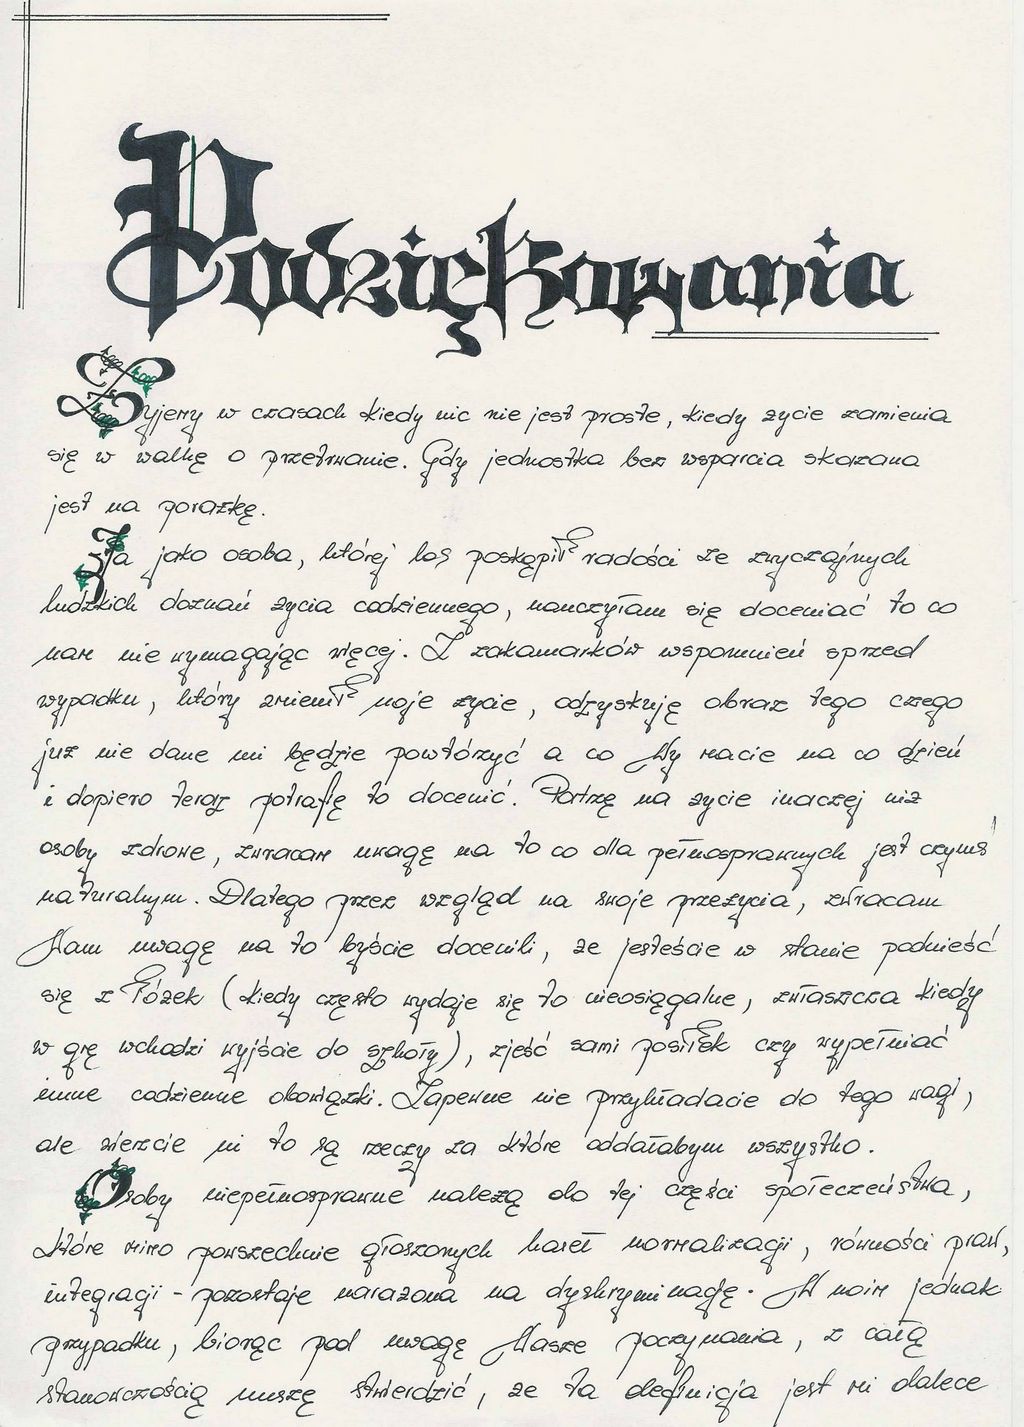 Podziękowania
Żyjemy w czasach kiedy nic nie jest proste, kiedy życie zamienia
się w walkę o przetrwanie. Gdy jednostka bez wsparcia skazana
jest na porażkę.
Ja jako osoba, której los poskąpił radości ze zwyczajnych
ludzkich doznań życia codziennego, nauczyłam się doceniać to co
mam nie wymagając więcej. Z zakamarków wspomnień sprzed
wypadku, który zmienił moje życie, odzyskuję obraz tego czego
już nie dane mi będzie powtórzyć a co Wy macie na co dzień
i dopiero teraz potrafię to docenić. Patrzę na życie inaczej niż
osoby zdrowe, zwracam uwagę na to co dla pełnosprawnych jest czymś
naturalnym. Dlatego przez wzgląd na swoje przeżycia, zwracam
Wam uwagę na to byście docenili, że jesteście w stanie podnieść
się z łóżek (kiedy często wydaje się to nieosiągalne, zwłaszcza kiedy
w grę wchodzi wyjście do szkoły), zjeść sami posiłek czy wypełniać
inne codzienne obowiązki. Zapewne nie przykładacie do tego wagi,
ale wierzcie mi to są rzeczy za które oddałabym wszystko.
Osoby niepełnosprawne należą do tej części społeczeństwa,
które mimo powszechnie głoszonych haseł normalizacji, równości praw,
integracji - pozostaje narażona na dyskryminację. W moim jednak
przypadku, biorąc pod uwagę Wasze poczynania, z całą
stanowczością muszę stwierdzić, że ta definicja jest mi dalece